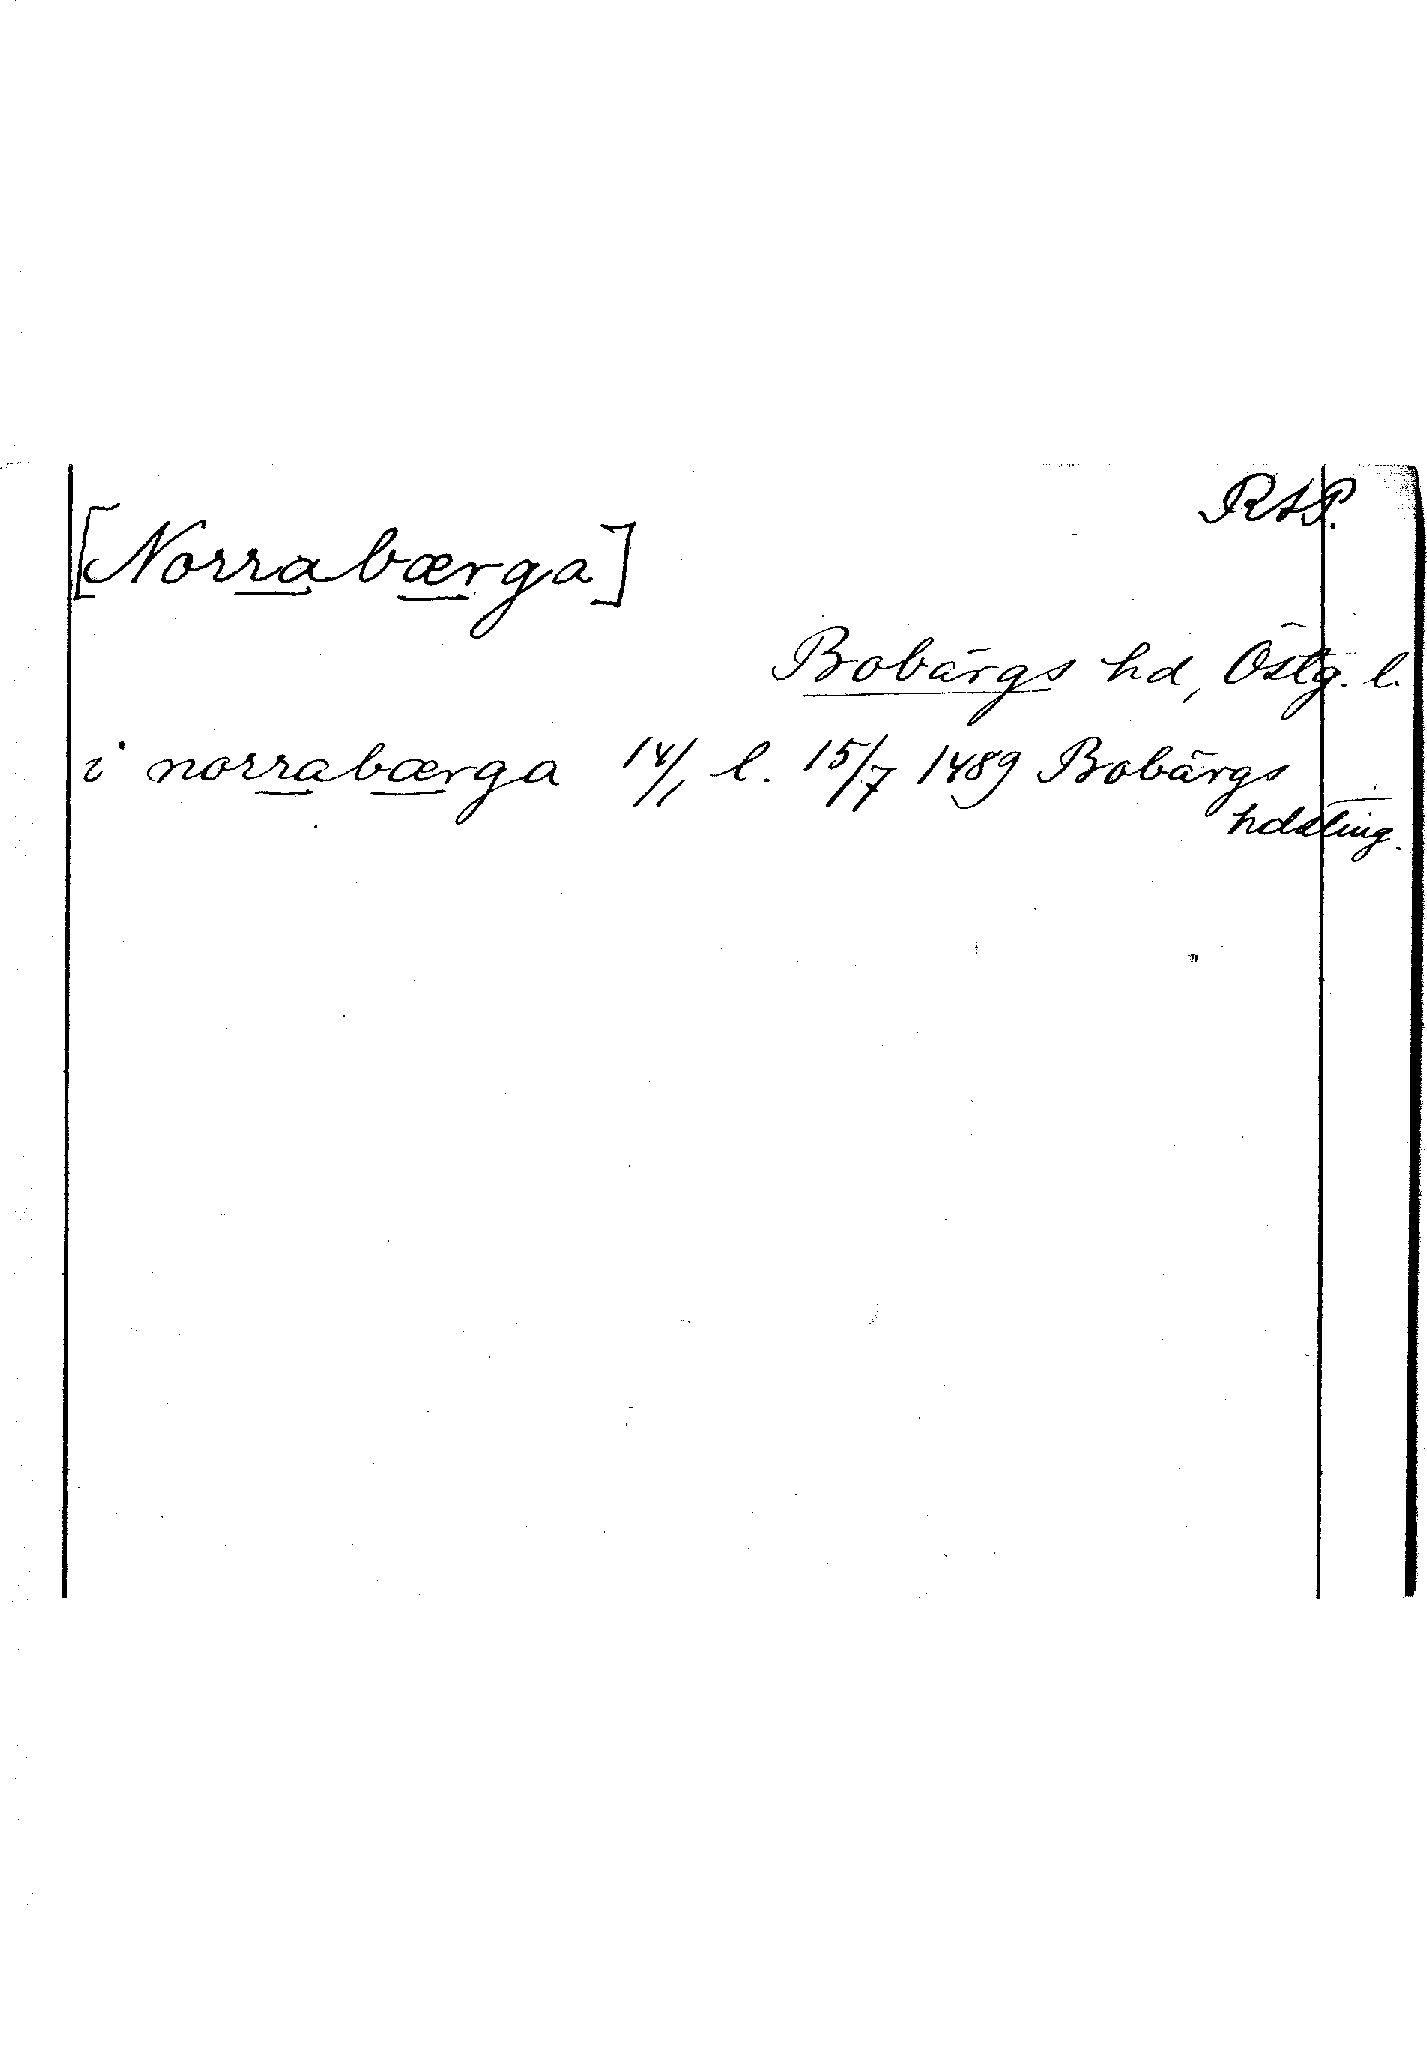 RAP.
[Norrabærga]
Bobärgs hd, Östg. l.
i norrabærga 14/1 l. 15/7 1489 Bobärgs
hdsting.